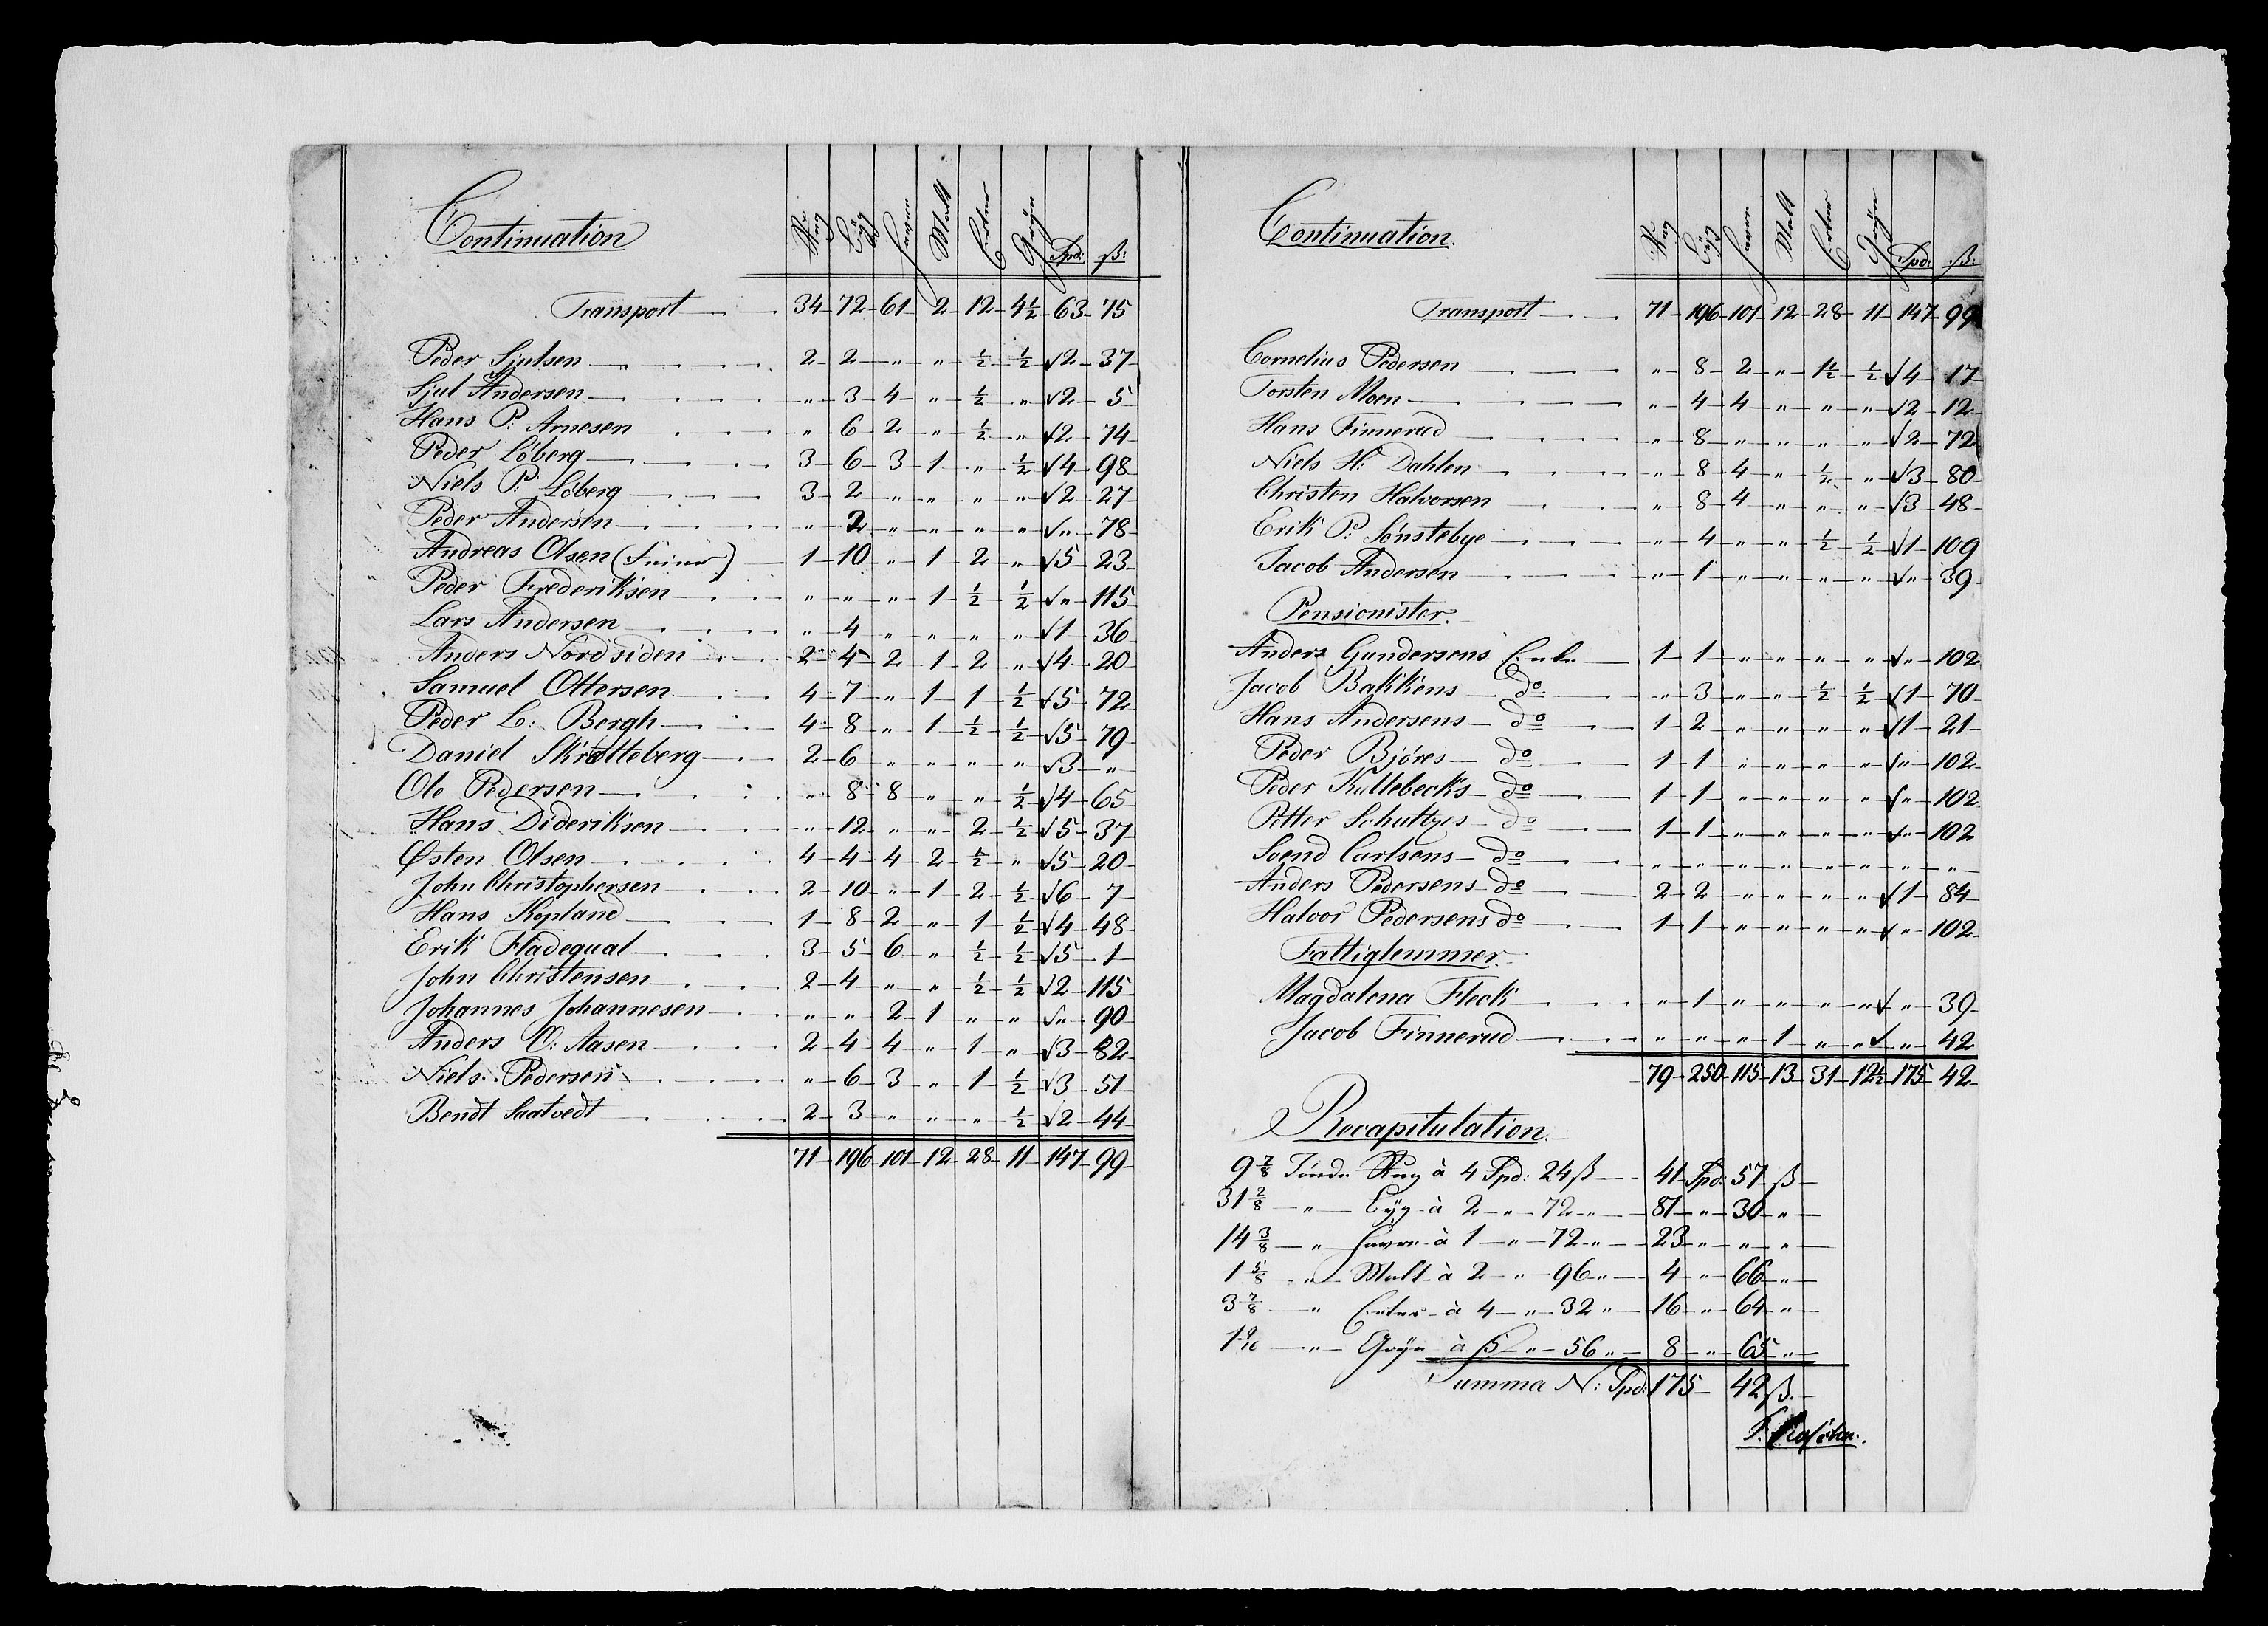 Continuation Rug Byg Havre Malt Erter Gryn Spd: ß:
Transport 34 72 61 2 12 4½ 63 75
Peder Sjulsen 2 2 " " ½ ½ √2 37
Sjul Andersen " 3 4 " ½ " √2 5
Hans P: Arnesen " 6 2 " ½ " √2 74
Peder Löberg 3 6 3 1 " ½ √4 98
Niels P: Löberg 3 2 " " " " √2 27
Peder Andersen " 2 " " " " √" 78
Andreas Olsen 1 10 " 1 2 " √5 23
Peder Frederiksen " " " 1 ½ ½ √" 115
Lars Andersen " 4 " " " " √1 36
Anders Nordsiden 2 4 2 1 2 " √4 20
Samuel Ottersen 4 7 " 1 1 ½ √5 72
Peder L: Bergh 4 8 " 1 ½ ½ √5 79
Daniel Skrotteberg 2 6 " " " " √3 "
Ole Pedersen " 8 8 " " ½ √4 65
Hans Dideriksen " 12 " " 2 ½ √5 37
Østen Olsen 4 4 4 2 ½ " √5 20
John Christophersen 2 10 " 1 2 ½ √6 7
Hans Kopland 1 8 2 " 1 ½ √4 48
Erik Fladequal 3 5 6 " ½ ½ √5 1
John Christensen 2 4 " " ½ ½ √2 115
Johannes Johannesen " " 2 1 " " √" 90
Anders O: Aasen 2 4 4 " 1 " √3 82
Niels Pedersen " 6 3 " 1 ½ √3 51
Bendt Saatvedt 2 3 " " " ½ √2 44
71 196 101 12 28 11 147 99
Continuation. Rug Byg Havre Malt Erter Gryn Spd: ß:
Transport 71 196 101 12 28 11 147 99
Cornelius Pedersen " 8 2 " 1½ ½ √4 17
Torsten Moen " 4 4 " " " √2 12
Hans Finnerud " 8 " " " " √2 72
Niels H: Dahlen " 8 4 " ½ " √3 80
Christen Halvorsen " 8 4 " " " √3 48
Erik P: Sønstebye " 4 " " ½ ½ √1 109
Jacob Andersen " 1 " " " " √" 39
Pensionister.
Anders Gundersens Enke 1 1 " " " " √" 102
Jacob Bakkens do " 3 " " ½ ½ √1 70
Hans Andersens do 1 2 " " " " √1 21
Peder Björes do 1 1 " " " " √" 102
Peder Kullebecks do 1 1 " " " " √" 102
Petter Schultzes do 1 1 " " " " √" 102
Svend Carlsens do " " " " " " " "
Anders Pedersens do 2 2 " " " " √1 84
Halvor Pedersens do 1 1 " " " " √" 102
Fattiglemmer.
Magdalena Fleck " 1 " " " " √" 39
Jacob Finnerud " " " 1 " " √" 42
79 250 115 13 31 12½ 175 42
Recapitulation.
9 7/8 Tönde Rug à 4 Spd: 24 ß 41 Spd: 57 ß
31 2/8 " Byg à 2 " 72 " 81 " 30 "
14 3/8 " Havre à 1 " 72 " 23 " " "
1 5/8 " Malt à 2 " 96 " 4 " 66 "
3 7/8 " Erter à 4 " 32 " 16 " 64 "
1 9/16 " Gryn à 5 " 56 " 8 " 65 "
Summa N: Spd: 175 42 ß.